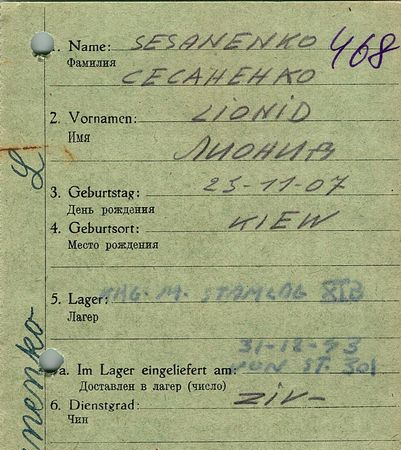 1. Name: SESANENKO 468
Фамилия СЕСАНЕНКО
2. Vornamen: LIONID
Имя ЛИОНИВ
3. Geburtstag: 25-11-07
День рождения
4. Geburtsort: KIEW
Место рождения
5. Lager: MAG. M. STAMLAG XIB
Лагерь
31-12-43
5a. Im Lager eingeliefert am: VON ST. 301
Доставлен в лагерь (число)
6. Dienstgrad: ZIV-
Чин
nenko L